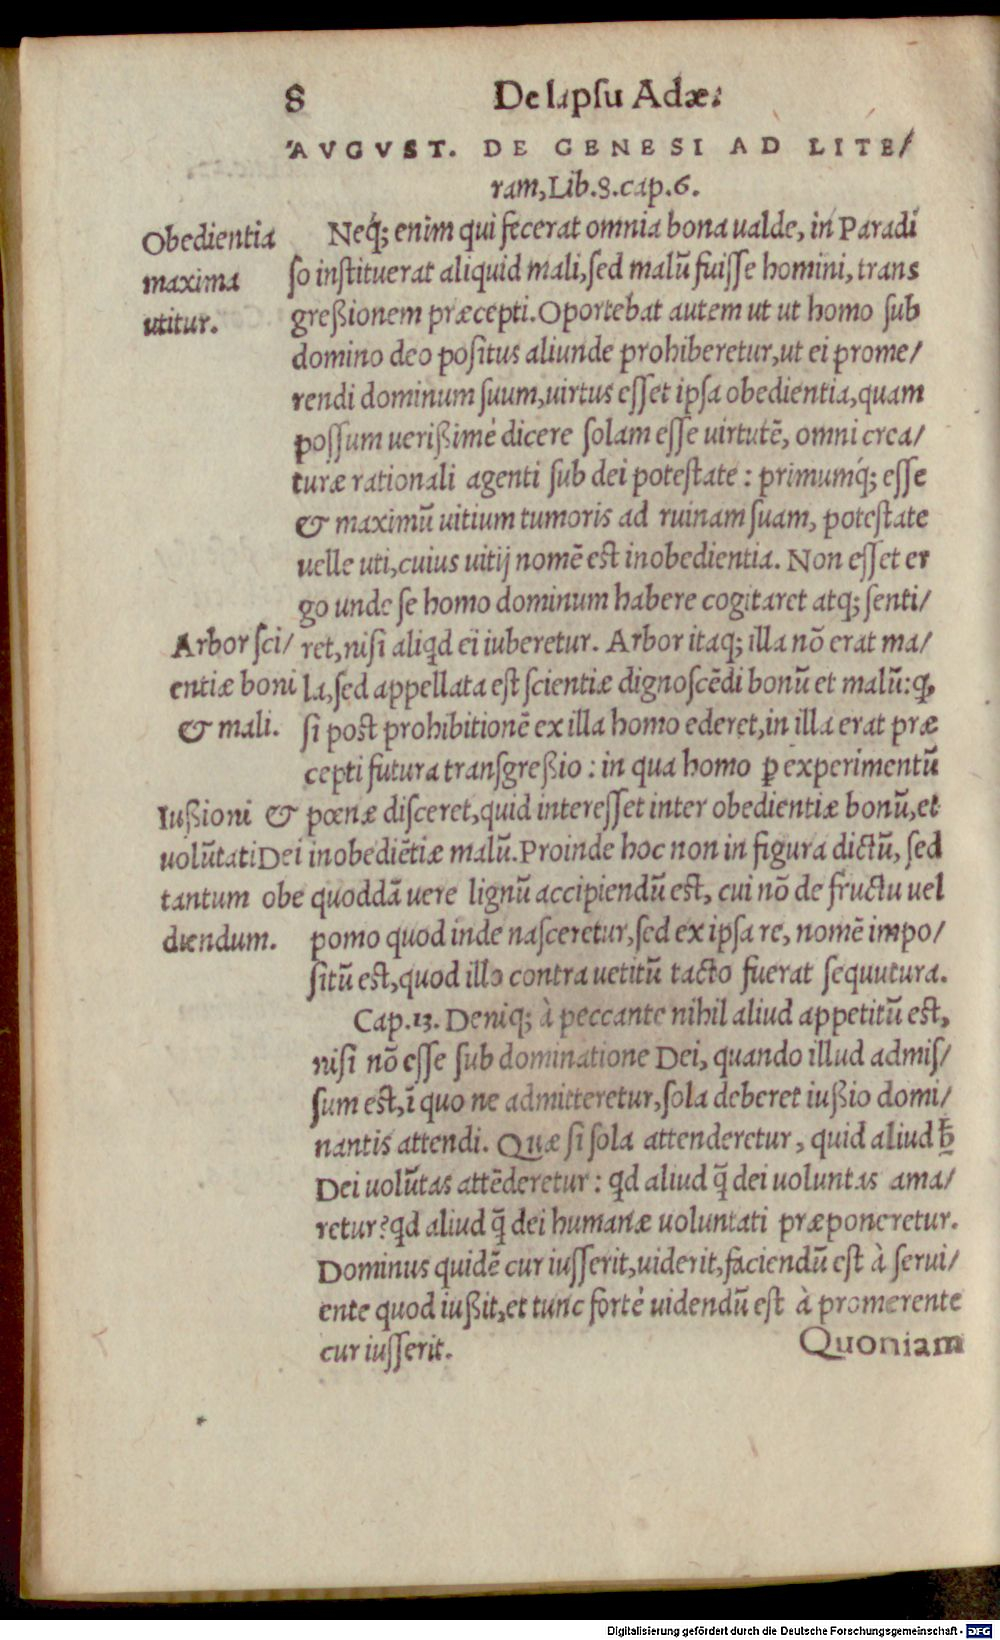 8 De lapsu Adæ.
AVGVST. DE GENESI AD LITE/
ram, Lib. 8. cap. 6.
Obedientia
maxima
utitur.
Neq́; enim qui fecerat omnia bona ualde, in Paradi
ſo inſtituerat aliquid mali, ſed malũ fuiſſe homini, trans
greßionem præcepti. Oportebat autem ut ut homo ſub
domino deo poſitus aliunde prohiberetur, ut ei prome/
rendi dominum ſuum, uirtus eſſet ipſa obedientia, quam
poſſum uerißimè dicere ſolam eſſe uirtutẽ, omni crea/
turæ rationali agenti ſub dei poteſtate: primumq́; eſſe
& maximũ uitium tumoris ad ruinam ſuam, poteſtate
uelle uti, cuius uitij nomẽ est inobedientia. Non eſſet er
go unde ſe homo dominum habere cogitaret atq; ſenti/
Arbor ſci/
entiæ boni
& mali.
ret, niſi aliqd ei iuberetur. Arbor itaq; illa nõ erat ma/
la, ſed appellata eſt ſcientiæ dignoſcẽdi bonũ et malũ: q,
ſi poſt prohibitionẽ ex illa homo ederet, in illa erat præ
cepti futura tranſgreßio: in qua homo ꝑ experimentũ
Iußioni &
uolũtati Dei
tantum obe
diendum.
pœnæ diſceret, quid intereſſet inter obedientiæ bonũ, et
inobediẽtiæ malũ. Proinde hoc non in figura dictũ, ſed
quoddã uere lignũ accipiendũ est, cui nõ de fructu uel
pomo quod inde naſceretur, ſed ex ipſa re, nomẽ impo/
ſitũ eſt, quod illo contra uetitũ tacto fuerat ſequutura.
Cap. 13. Deniq; à peccante nihil aliud appetitũ eſt,
niſi nõ eſſe ſub dominatione Dei, quando illud admiſ/
ſum eſt, ĩ quo ne admitteretur, ſola deberet iußio domi/
nantis attendi. Quæ ſi ſola attenderetur, quid aliud
Dei uolũtas attẽderetur: qd aliud q̃ dei uoluntas ama/
retur? qd aliud q̃ dei humanæ uoluntati præponeretur.
Dominus quidẽ cur iuſſerit, uiderit, faciendũ eſt à ſerui/
ente quod iußit, et tunc fortè uidendũ eſt à promerente
cur iuſſerit.
Quoniam
Digitalisierung gefördert durch die Deutsche Forschungsgemeinschaft - DFG